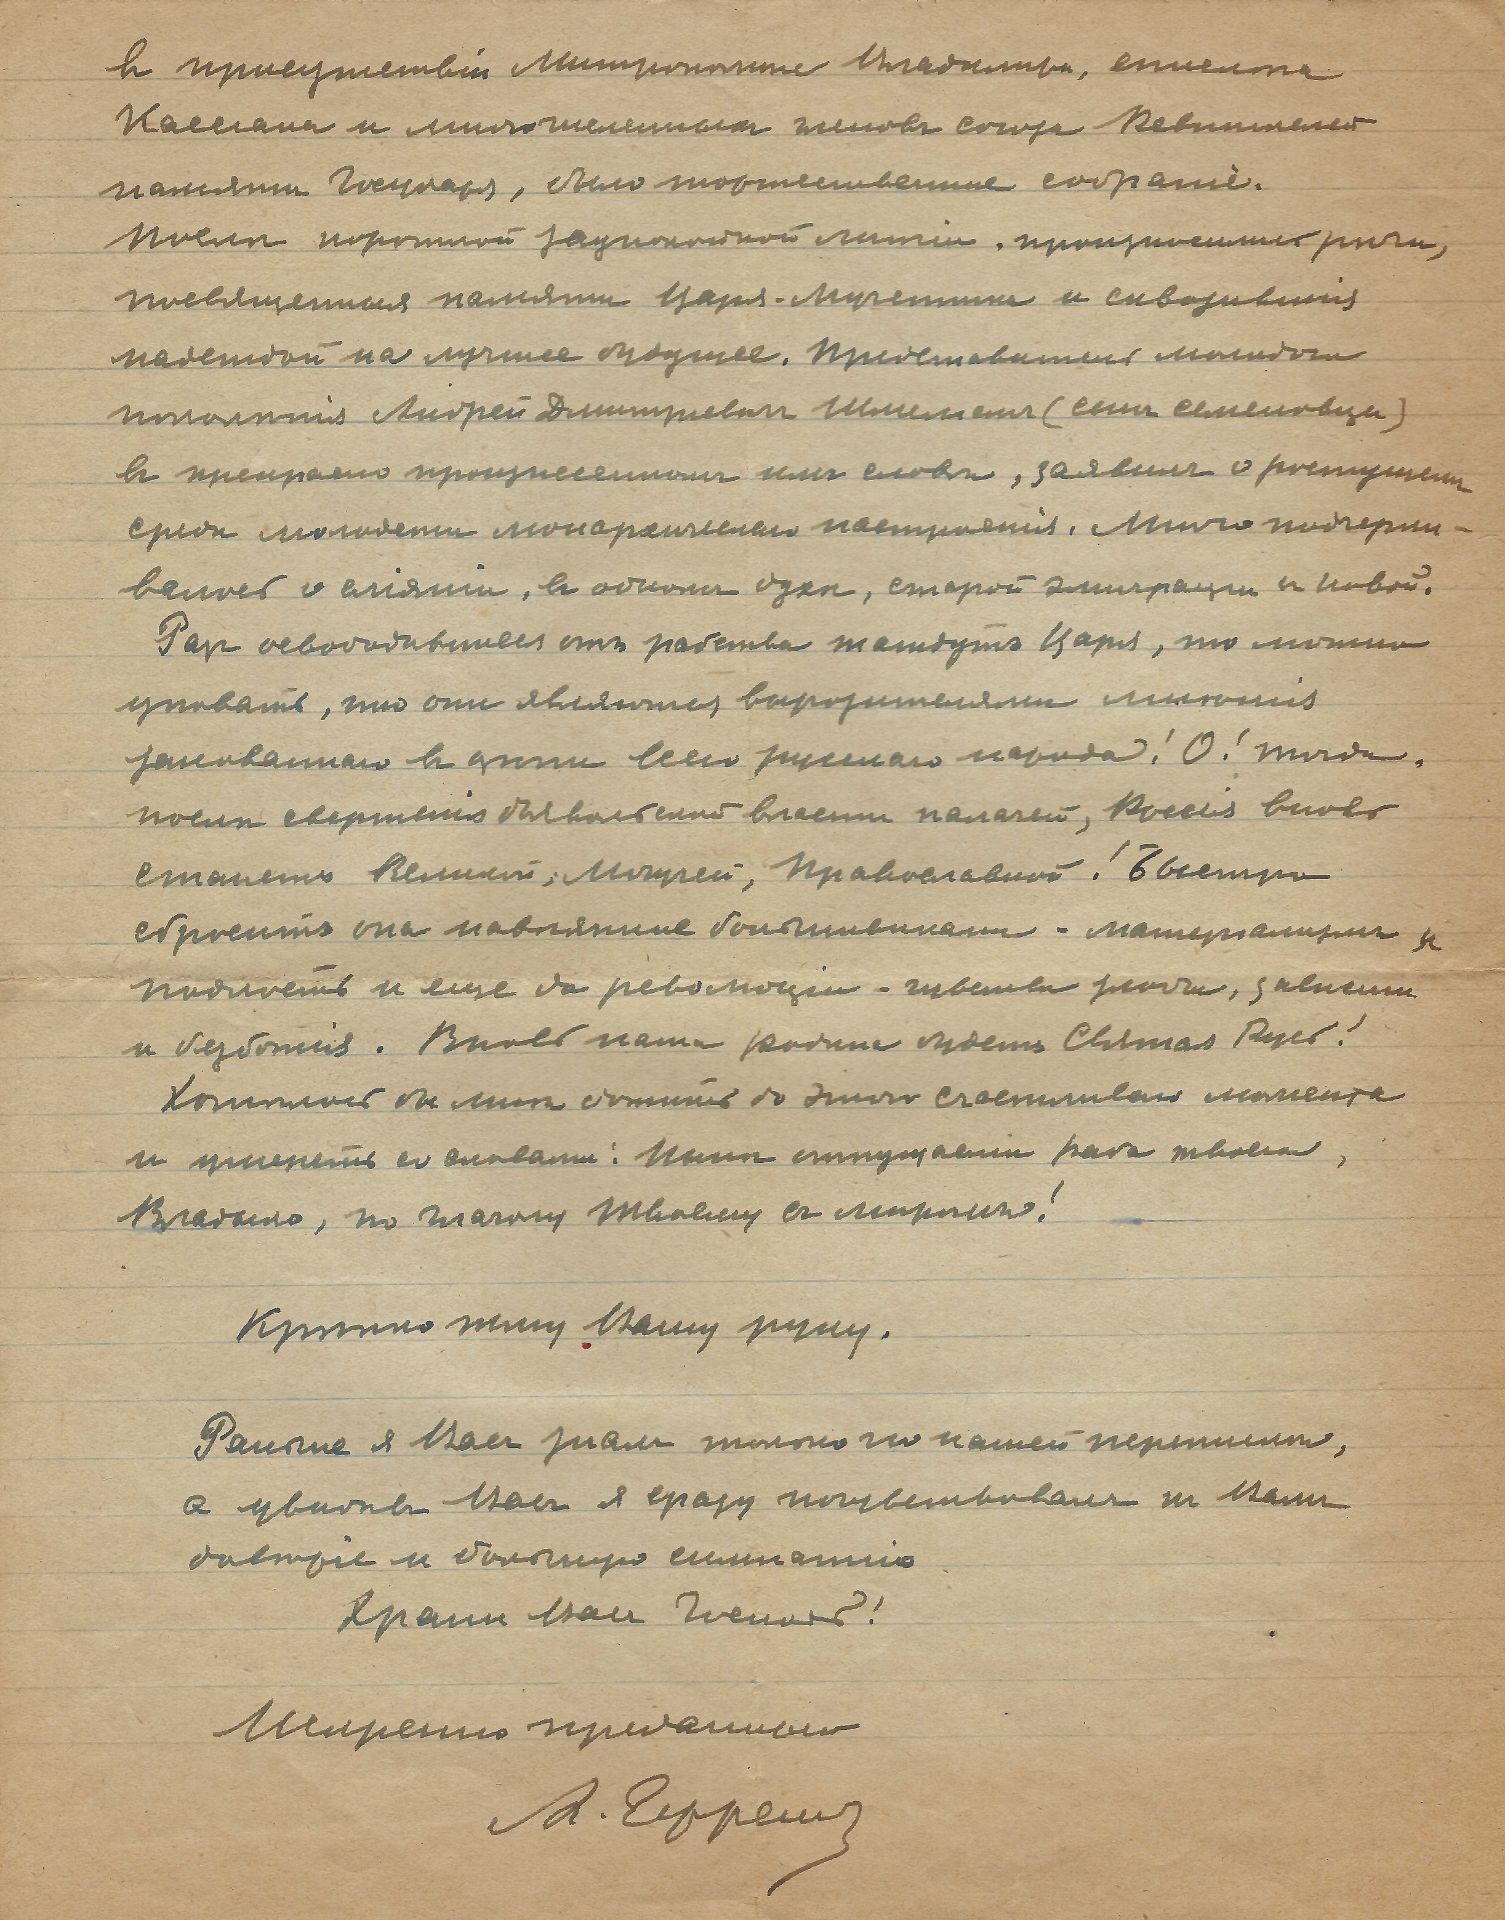 въ присутствіи Митрополита Владимира, епископа
Кассіана и многочисленныхъ членовъ союза Ревнителей
памяти Государя, было торжественное собраніе.
Послѣ короткой заупокойной литіи, произносились рѣчи,
посвященныя памяти Царя-Мученика и
надеждой на лучшее будущее. Представитель молодого
поколѣнія Андрей Дмитріевичъ Шмеманъ (сынъ семеновца)
въ прекрасно произнесенномъ имъ словѣ, заявилъ о ростущемъ
среди молодежи монархическаго настроенія. Много подчерки-
валось о сліяніи, въ одномъ духѣ, старой эмиграціи и новой.
Разъ освободившіеся отъ рабства жаждутъ Царя, то можно
уповать, что они являются выразителями
закованнаго въ цѣпи всего русскаго народа! О! тогда,
послѣ сверженія дьявольской власти палачей, Россія вновь
станетъ Великой, Могучей, Православной! Быстро
сброситъ она навѣянные большевиками - матеріализмъ и
подлость и еще до революціи - чувства злобы, зависти
и безбожія. Вновь наша родина будетъ Святая Русь!
Хотѣлось бы мнѣ дожить до этого счастливаго момента
и умереть со словами: Нынѣ отпущаеши раба твоего,
Владыко, по глаголу Твоему съ миромъ!
Крѣпко жму Вашу руку.
Раньше я Васъ зналъ только по нашей перепискѣ,
а увидѣвъ Васъ я сразу почувствовалъ къ Вамъ
довѣріе и большую симпатію
Храни Васъ Господь!
Искренно преданный
А. Гефферт